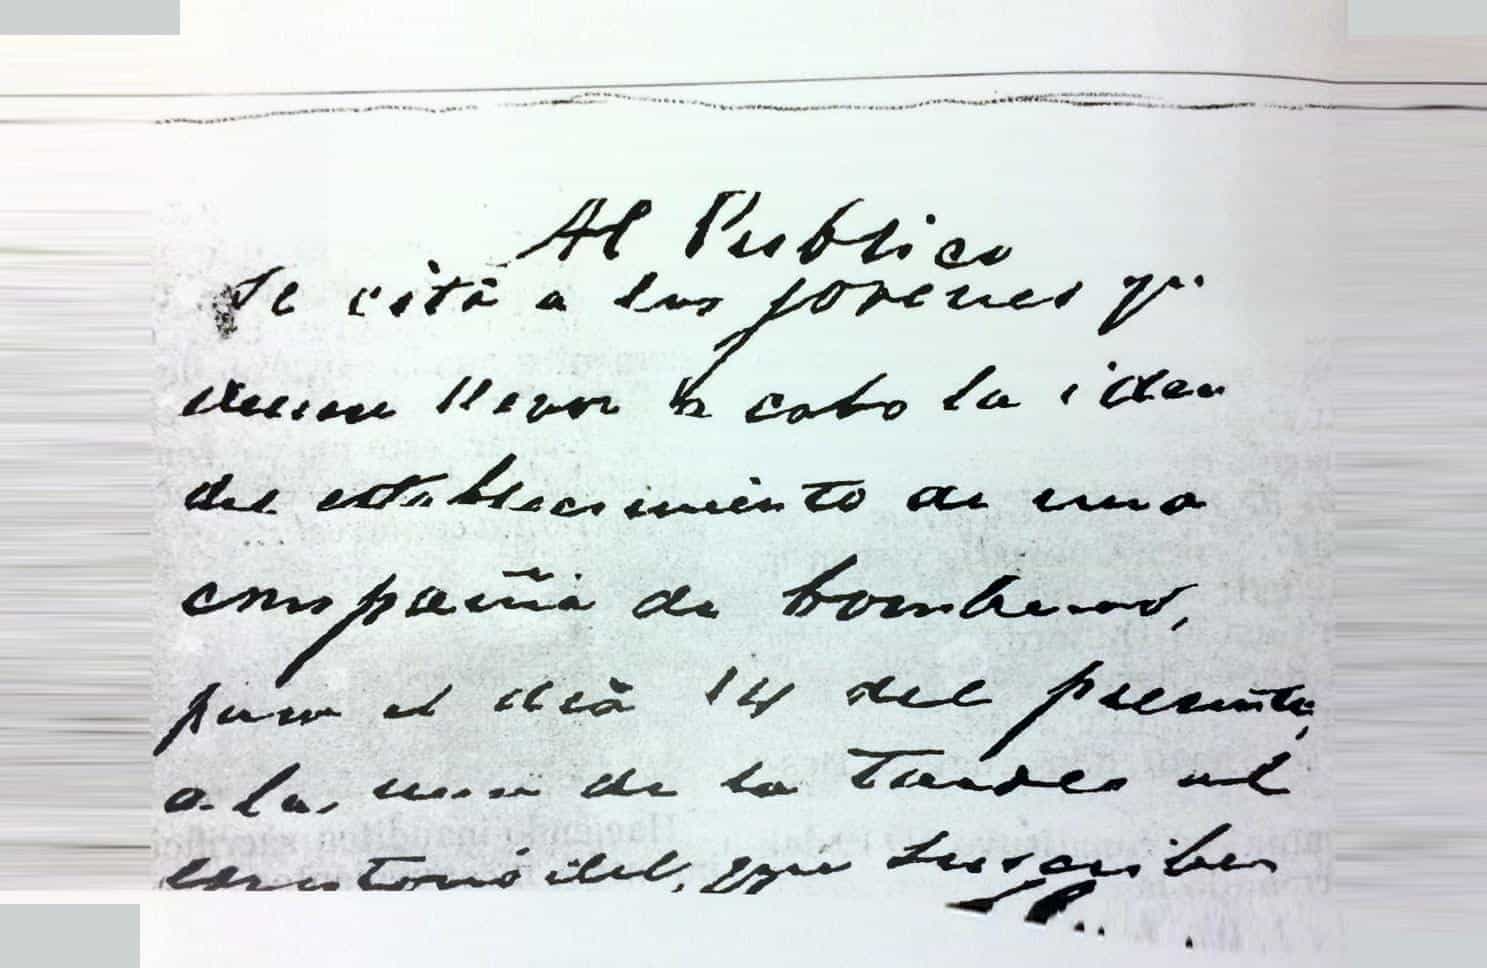 Al Publico
Se cita a los jovenes qe
deseen llevar a cabo la idea
del establecimiento de una
compañia de bomberos,
para el dia 14 del presente,
a las una de la tarde al
escritorio del, que suscribe